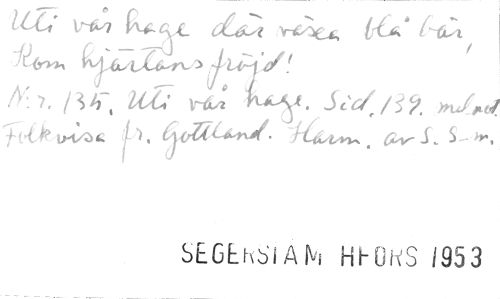 Uti vår hage där växa blå bär,
Kom hjärtans fröjd!
Nr. 135. Uti vår hage. Sid. 139. med not.
Folkvisa fr. Gottland. Harm. av S. S-m.
SEGERSTAM HFORS 1953